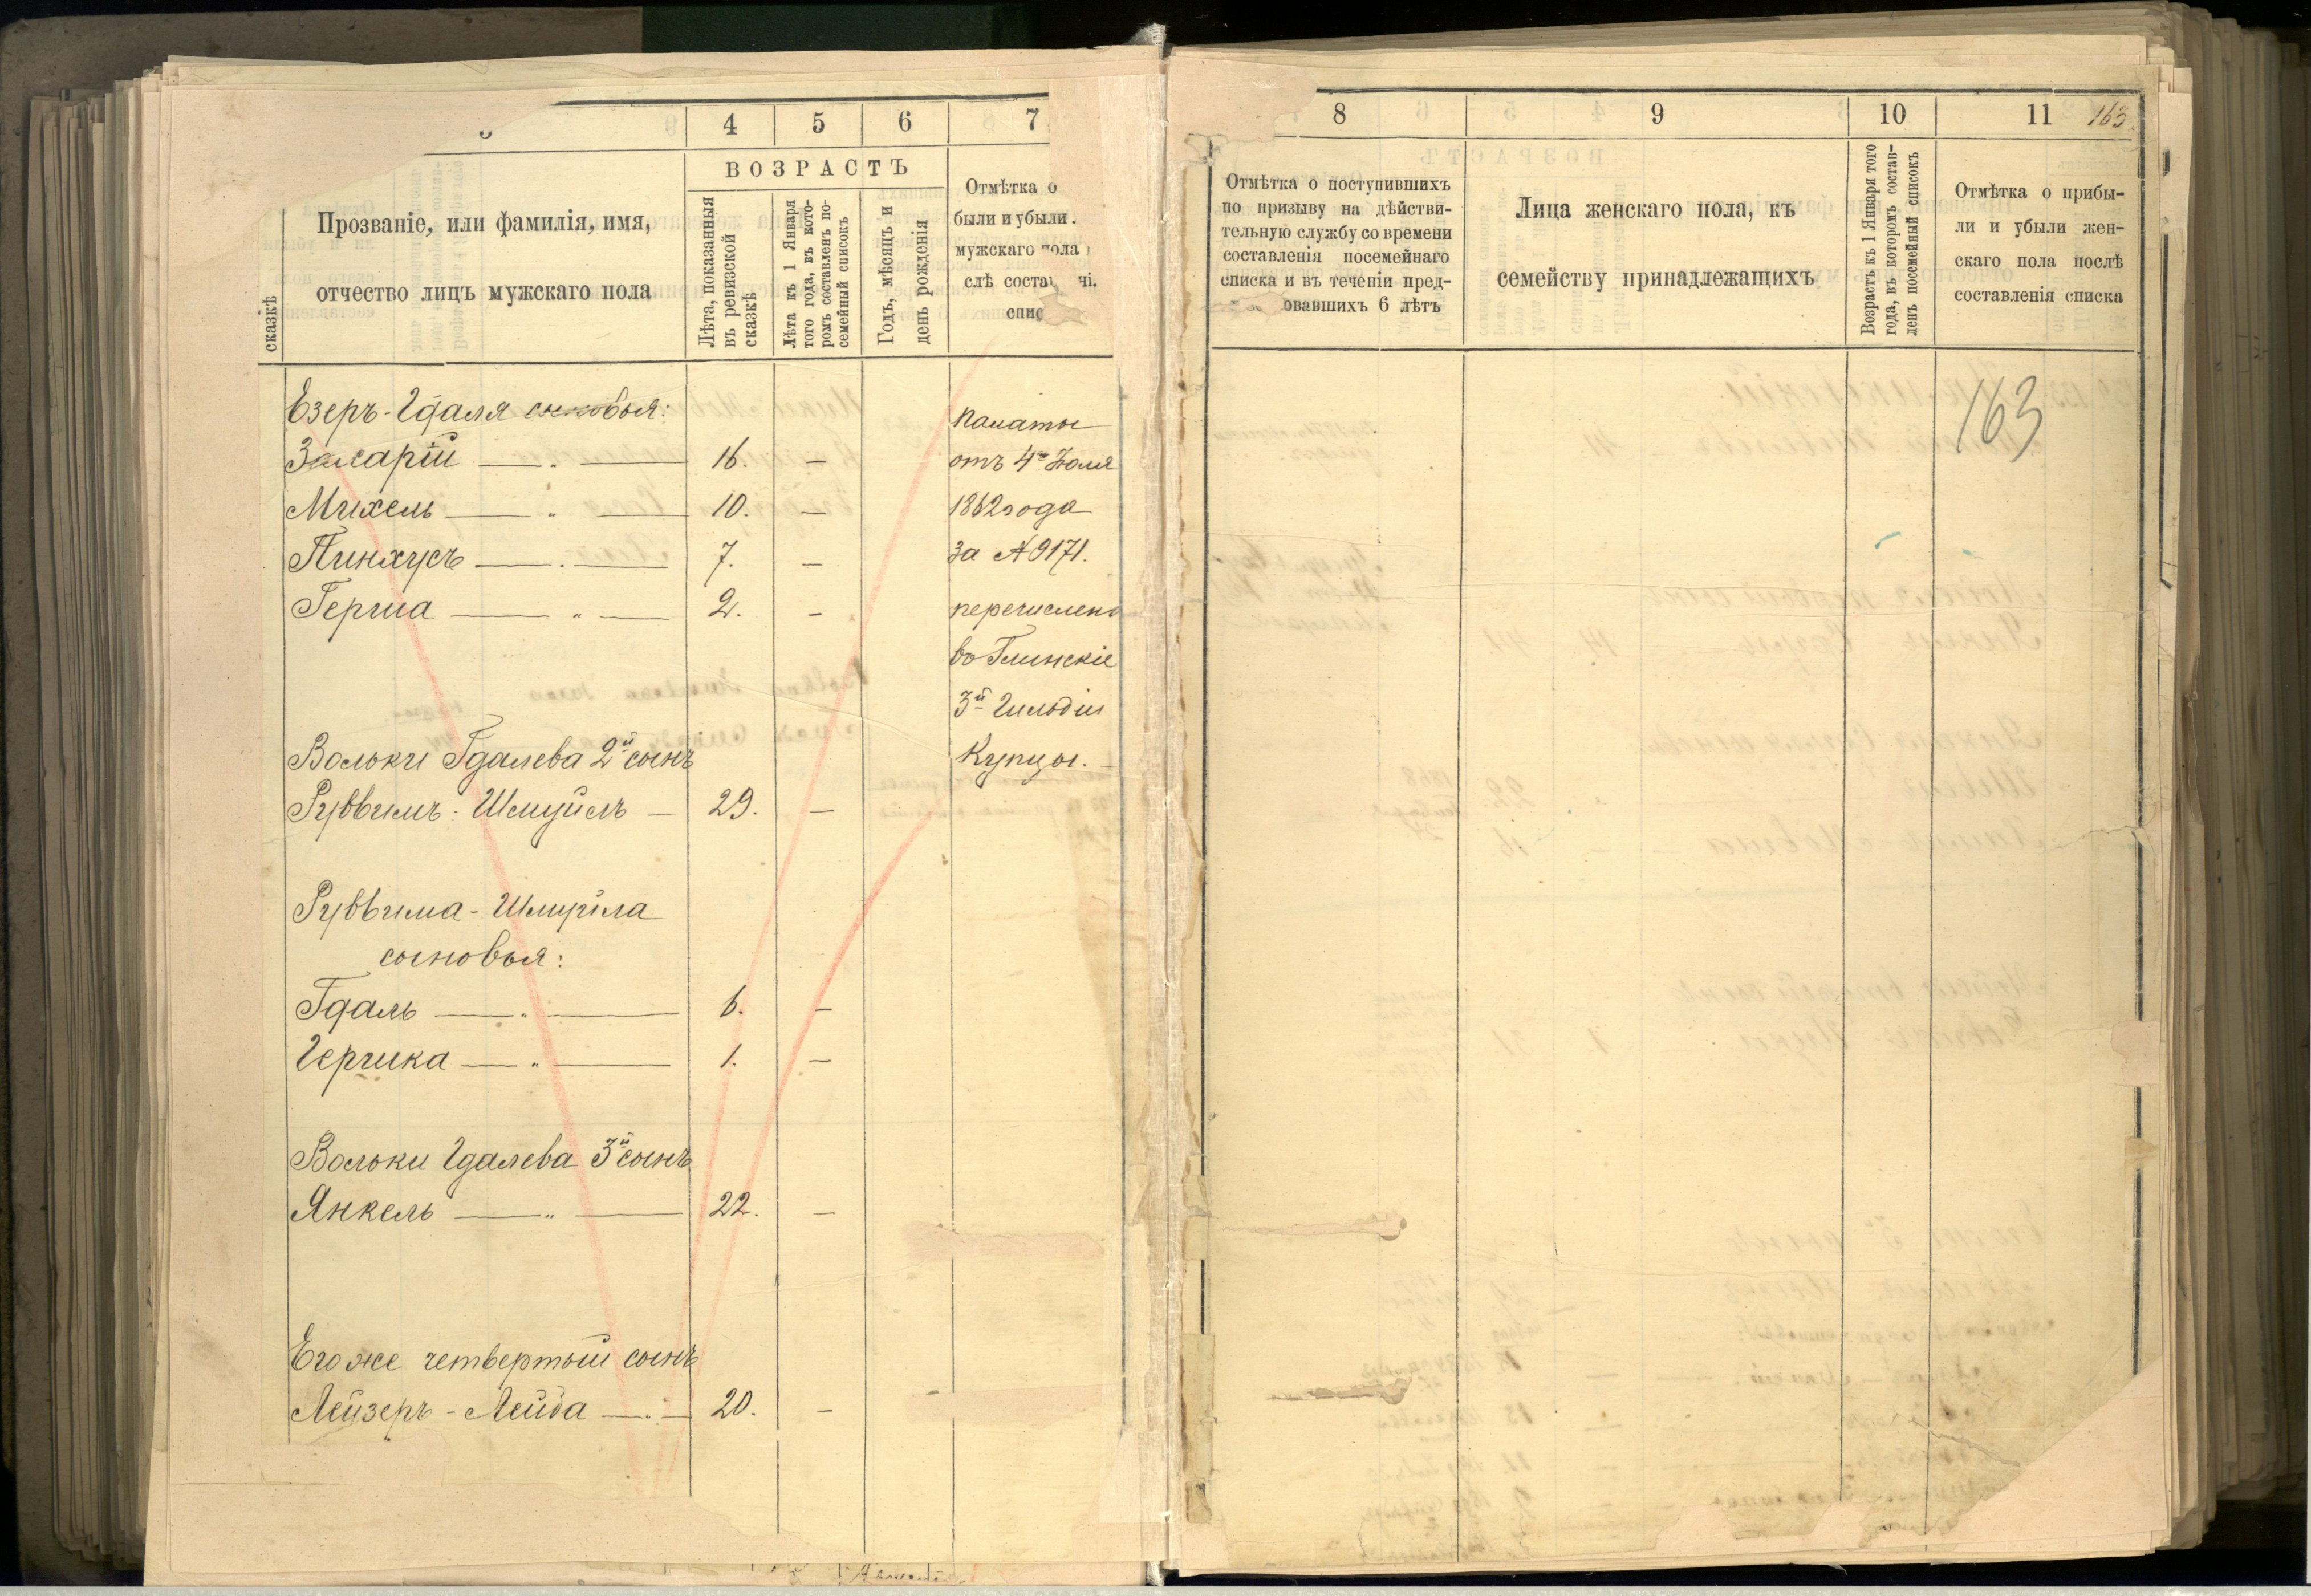 4
5
6
7
ВОЗРАСТЪ
сказкѣ
Прозваніе, или фамилія, имя,
отчество лицъ мужскаго пола
Лѣта, показанныя
въ ревизской
сказкѣ
Лѣта къ 1 Января
того года, въ кото-
ромъ составленъ по-
семейный списокъ
Годъ, мѣсяцъ и
день рожденія
Отмѣтка о
были и убыли
мужскаго пола
слѣ соста
спис
Езеръ-Гдаля сыновья:
Захарій — " — 16. —
Михель — " — 10. —
Пинхусъ — " — 7. —
Герша — " — 2. —
Вольки Гдалева 2й сынъ
Руввимъ-Шмуйлъ — 29. —
Руввима-Шмуйла
сыновья:
Гдаль — " — 6. —
Гершка — " — 1. —
Вольки Гдалева 3й сынъ
Янкель — " — 22. —
Его же четвертый сынъ
Лейзеръ-Лейба — " — 20. —
палаты
отъ 4го Іюля
1862 года
за № 9171.
перечислены
въ Глинскіе
3й Гильдіи
Купцы.
8
9
10
11
163
Отмѣтка о поступившихъ
по призыву на дѣйстви-
тельную службу со времени
составленія посемейнаго
списка и въ теченіи пред-
овавшихъ 6 лѣтъ
Лица женскаго пола, къ
семейству принадлежащихъ
Возрастъ къ 1 Января того
года, въ которомъ состав-
ленъ посемейный списокъ
Отмѣтка о прибы-
ли и убыли жен-
скаго пола послѣ
составленія списка
163